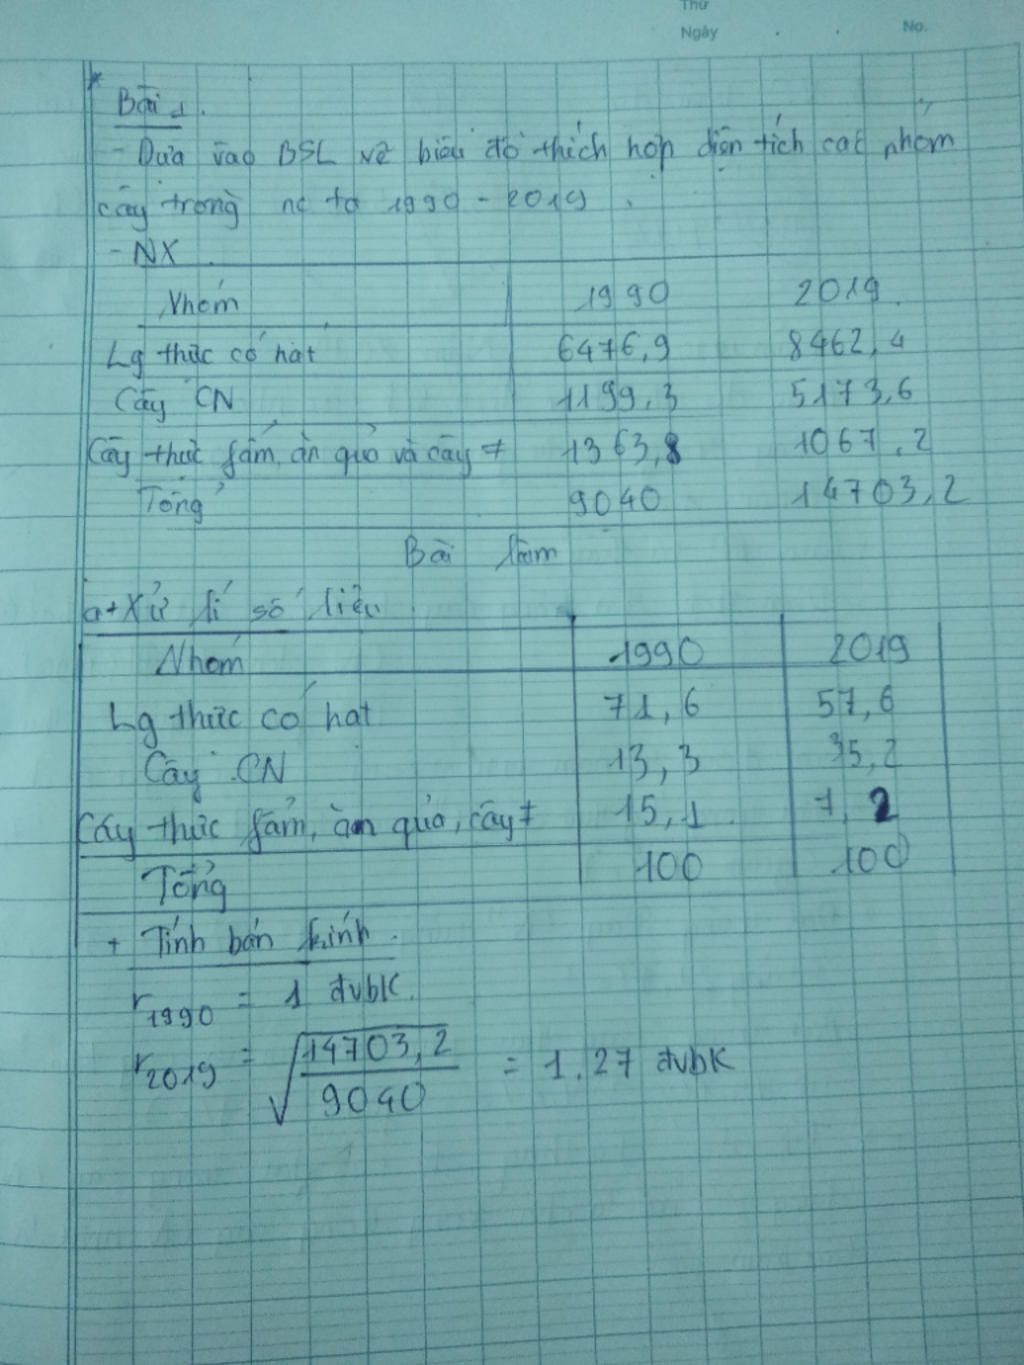 Thứ
Ngày . . No.
*
Bài 1.
- Dựa vào BSL vẽ biểu đồ thích hợp diện tích các nhóm
cây trồng nc ta 1990 - 2019.
- NX.
Nhóm 1990 2019.
Lg thực có hạt 6476,9 8462,4
Cây CN 1199,3 5173,6
Cây thực fẩm, ăn quả và cây ≠ 1363,8 1067,2
Tổng 9040 14703,2
Bài làm
a + Xử lí số liệu.
Nhóm 1990 2019
Lg thực có hạt 71,6 57,6
Cây CN 13,3 35,2
Cây thực fẩm, ăn quả, cây ≠ 15,1 7,2
Tổng 100 100
+ Tính bán kính.
r1990 = 1 đvbk.
r2019 = √14703,2/9040 = 1,27 đvbk